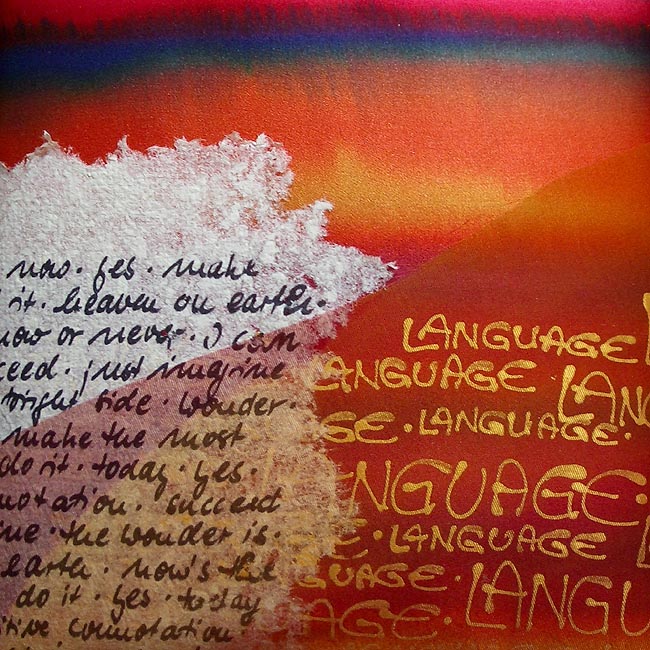 now · yes · make
it · heaven on earth ·
now or never · I can
ceed · just imagine
bright side · wonder ·
make the most
do it · today · yes ·
notation · succeed
ine · the wonder is ·
earth · now's the
do it · yes · today
itive connotation ·
LANGUAGE L
LANGUAGE LANG
GE · LANGUAGE ·
NGUAGE ·
E · LANGUAGE L
GUAGE · LANGU
AGE ·